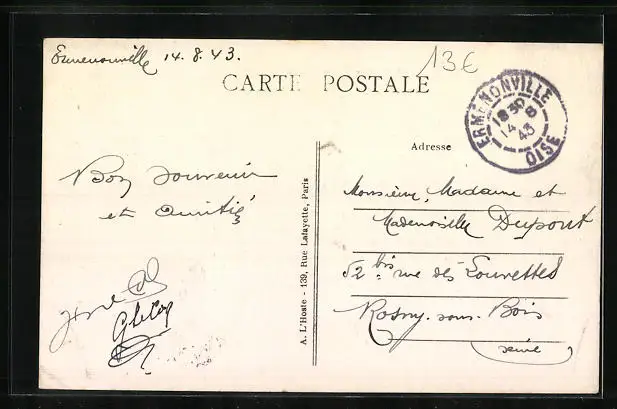 Ermenonville 14.8.43.
13€
CARTE POSTALE
ERMENONVILLE
18 30
14 - 8
43
OISE
Adresse
Bon souvenir
et amitié
A. L'Hoste - 139, Rue Lafayette, Paris
Monsieur, Madame et
Mademoiselle Dupont
52 bis rue des
Rosny-sous-Bois
Seine